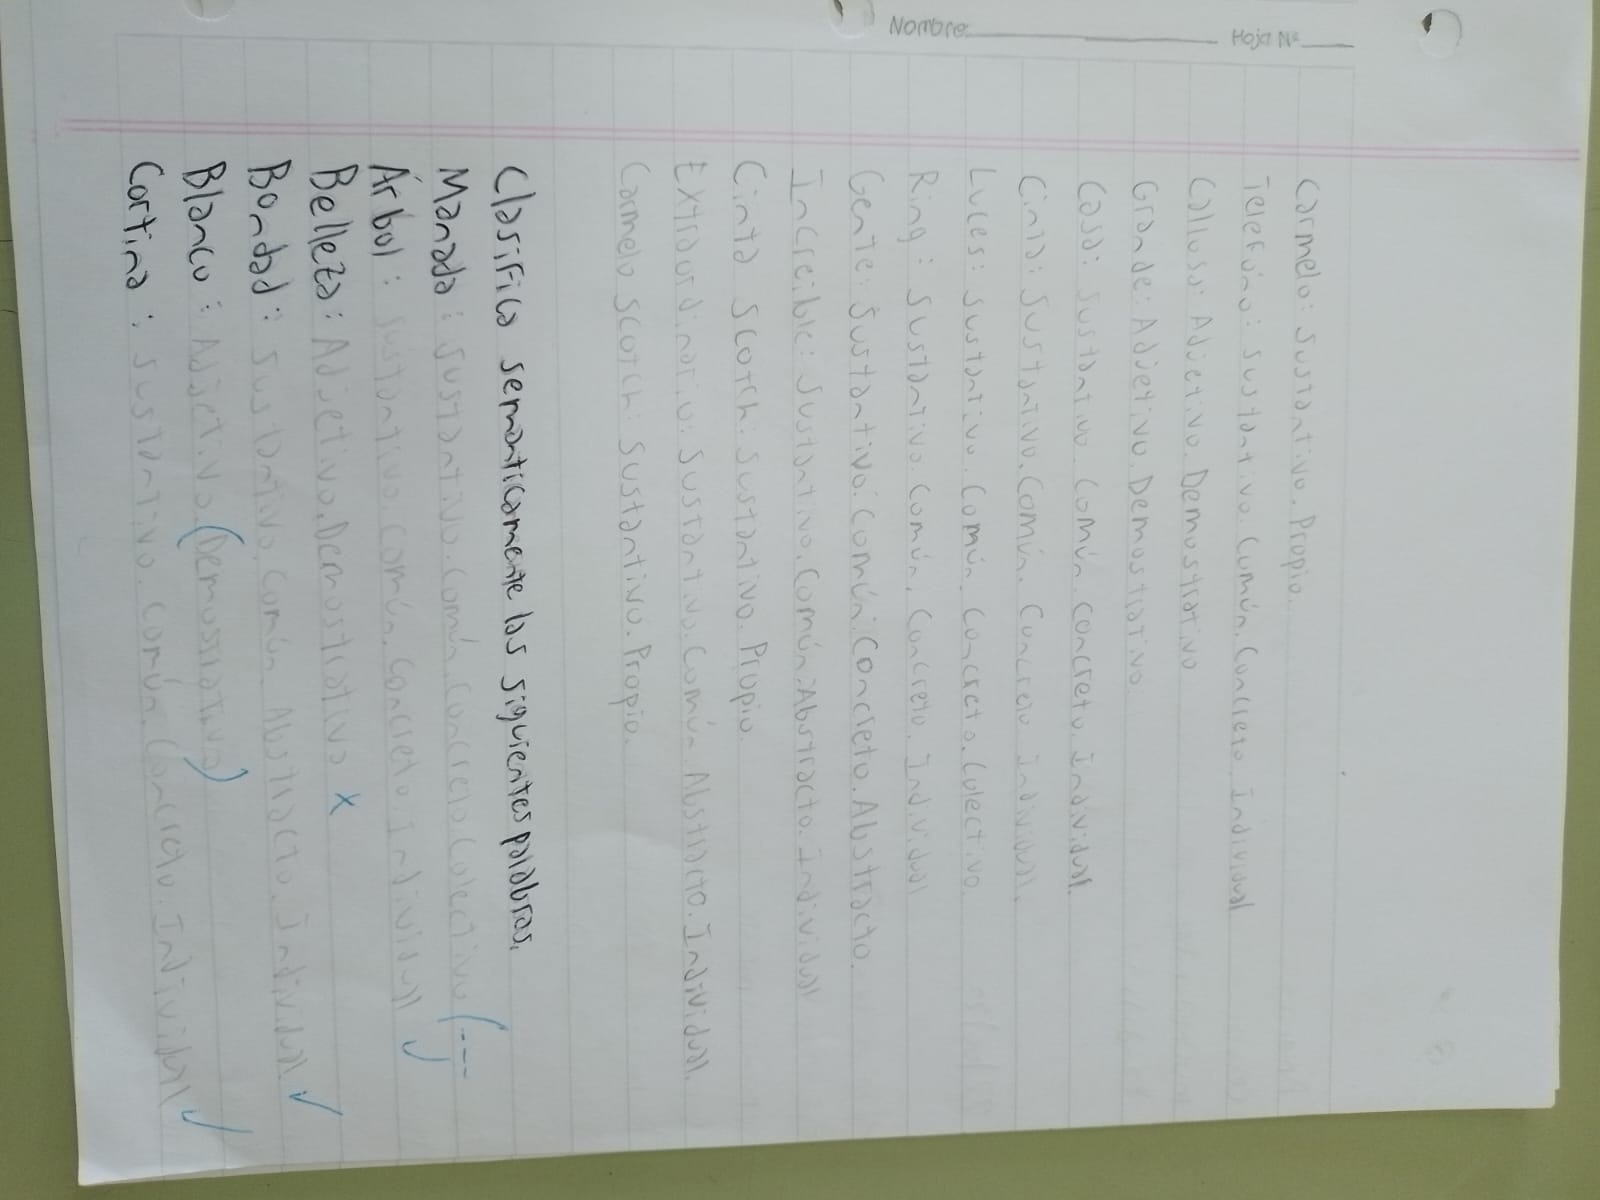 Nombre Hoja Nº
Carmelo: Sustantivo. Propio.
Teléfono: Sustantivo. Común. Concreto. Individual
Callosa: Adjetivo. Demostrativo
Grande: Adjetivo. Demostrativo.
Casa: Sustantivo. Común. Concreto. Individual.
Cinta: Sustantivo. Común. Concreto individual.
Luces: Sustantivo. Común. Concreto. Colectivo.
Ring: Sustantivo. Común. Concreto. Individual
Gente: Sustantivo: Común: Concreto. Abstracto.
Increible: Sustantivo. Común. Abstracto. Individual
Cinta Scotch: Sustantivo. Propio.
Extraordinario: Sustantivo. Común. Abstracto. Individual.
Carmelo Scotch: Sustantivo. Propio.
Clasifica semanticamente las siguientes palabras.
Manada: Sustantivo. Común. Concreto. Colectivo (---
Árbol: Sustantivo. Común. Concreto. Individual ✓
Belleza: Adjetivo. Demostrativo x
Bondad: Sustantivo. Común. Abstracto. Individual. ✓
Blanco: Adjetivo. (Demostrativo)
Cortina: Sustantivo. Común. Concreto. Individual ✓